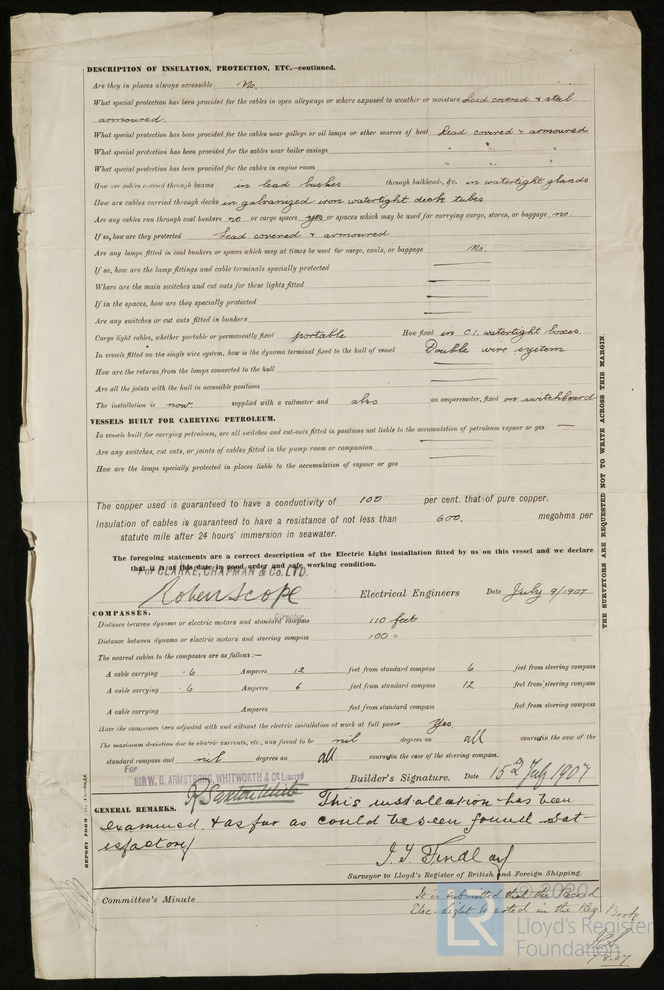 DESCRIPTION OF INSULATION, PROTECTION, ETC.—continued.
Are they in places always accessible No.
What special protection has been provided for the cables in open alleyways or where exposed to weather or moisture Lead covered & steel
armoured.
What special protection has been provided for the cables near galleys or oil lamps or other sources of heat Lead covered & armoured
What special protection has been provided for the cables near boiler casings " " "
What special protection has been provided for the cables in engine room " " "
How are cables carried through beams in lead bushes through bulkheads, &c. in watertight glands
How are cables carried through decks in galvanized iron watertight deck tubes
Are any cables run through coal bunkers no or cargo spaces yes or spaces which may be used for carrying cargo, stores, or baggage no.
If so, how are they protected Lead covered & armoured
Are any lamps fitted in coal bunkers or spaces which may at times be used for cargo, coals, or baggage No.
If so, how are the lamp fittings and cable terminals specially protected
Where are the main switches and cut outs for these lights fitted
If in the spaces, how are they specially protected
Are any switches or cut outs fitted in bunkers
Cargo light cables, whether portable or permanently fixed portable How fixed in C.I. watertight boxes
In vessels fitted on the single wire system, how is the dynamo terminal fixed to the hull of vessel Double wire system
How are the returns from the lamps connected to the hull
Are all the joints with the hull in accessible positions
The installation is now supplied with a voltmeter and also an amperemeter, fixed on switchboard
VESSELS BUILT FOR CARRYING PETROLEUM.
In vessels built for carrying petroleum, are all switches and cut-outs fitted in positions not liable to the accumulation of petroleum vapour or gas —
Are any switches, cut outs, or joints of cables fitted in the pump room or companion
How are the lamps specially protected in places liable to the accumulation of vapour or gas
The copper used is guaranteed to have a conductivity of 100 per cent. that of pure copper.
Insulation of cables is guaranteed to have a resistance of not less than 600. megohms per
statute mile after 24 hours' immersion in seawater.
The foregoing statements are a correct description of the Electric Light installation fitted by us on this vessel and we declare
that it is at this date in good order and safe working condition.
For CLARKE, CHAPMAN & Co. LTD.
Electrical Engineers Date July 9/1907
Director
COMPASSES.
Distance between dynamo or electric motors and standard compass 110 feet
Distance between dynamo or electric motors and steering compass 100 "
The nearest cables to the compasses are as follows:—
A cable carrying .6 Amperes 12 feet from standard compass 6 feet from steering compass
A cable carrying .6 Amperes 6 feet from standard compass 12 feet from steering compass
A cable carrying Amperes feet from standard compass feet from steering compass
Have the compasses been adjusted with and without the electric installation at work at full power Yes.
The maximum deviation due to electric currents, etc., was found to be nil degrees on all courses in the case of the
standard compass and nil degrees on all courses in the case of the steering compass.
For
SIR W. G. ARMSTRONG, WHITWORTH & Co Limited
Builder's Signature. Date July 1907
GENERAL REMARKS. This installation has been
examined, & as far as could be seen found sat-
isfactory
J. T. Findlay
Surveyor to Lloyd's Register of British and Foreign Shipping.
Committee's Minute
It is submitted that the Record
Elec. Light be noted in the Reg. Book
THE SURVEYORS ARE REQUESTED NOT TO WRITE ACROSS THIS MARGIN.
LR
2020
Lloyd's Register
Foundation